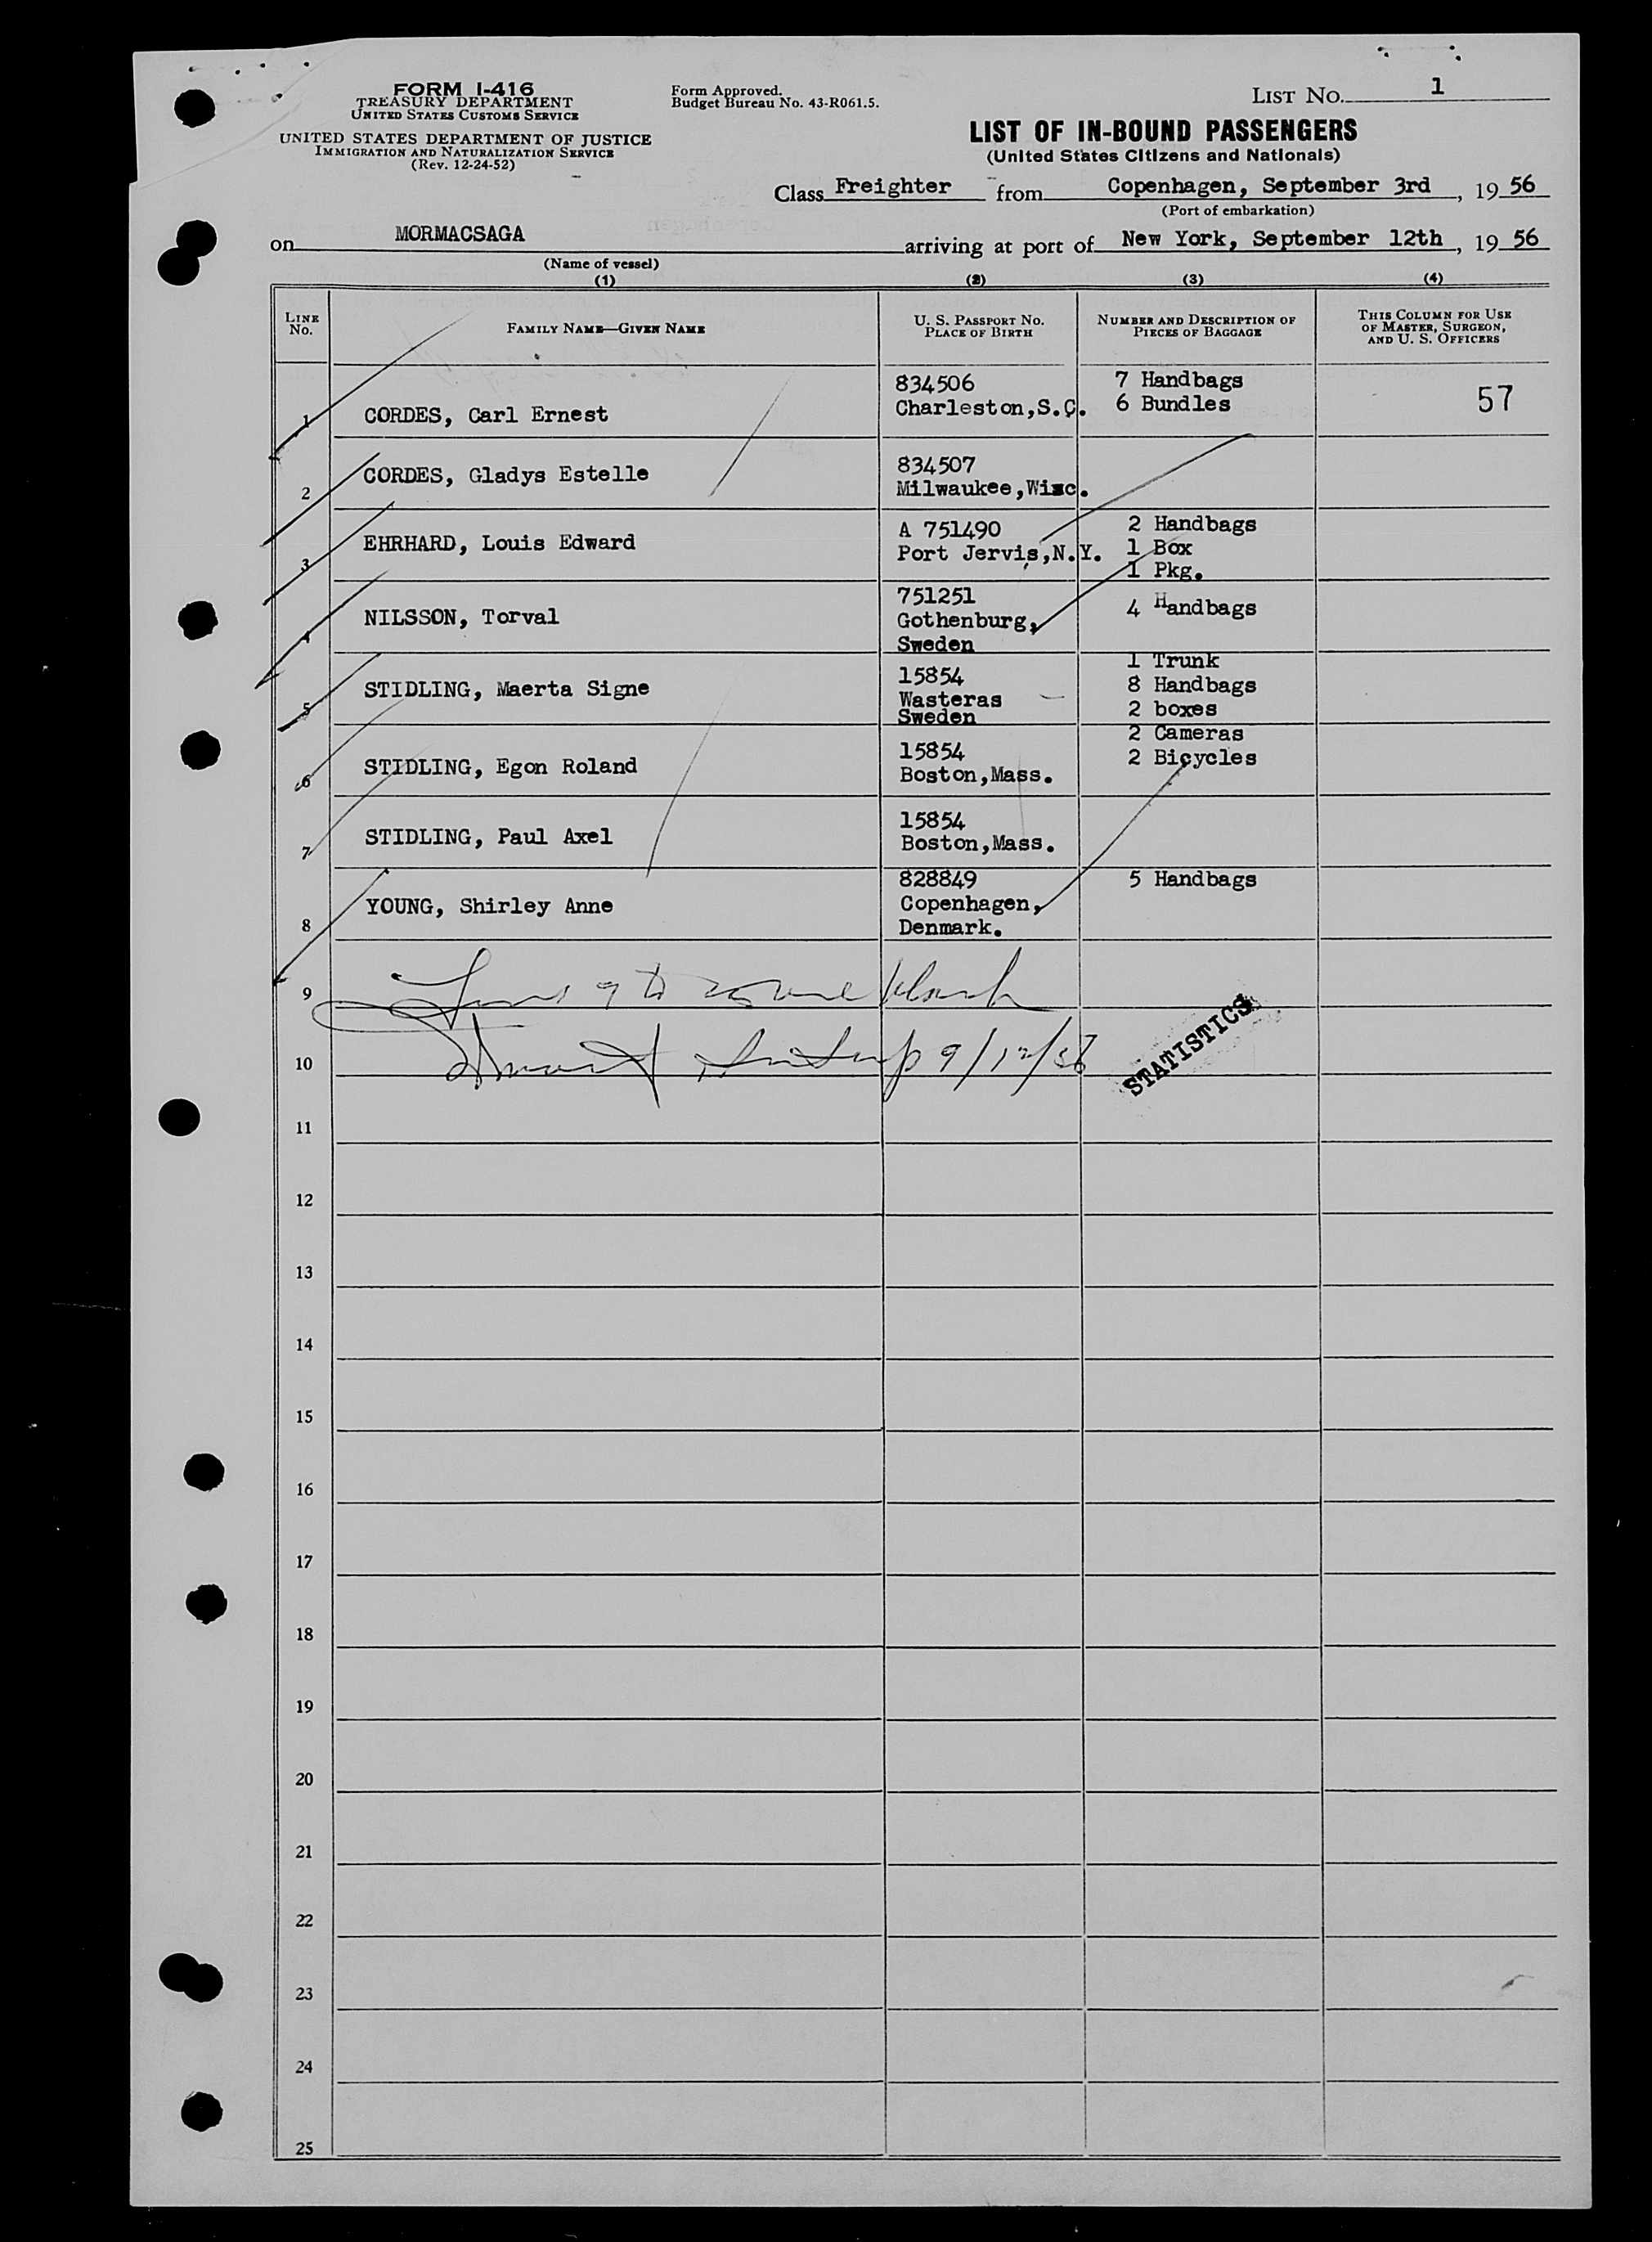 FORM I-416
TREASURY DEPARTMENT
UNITED STATES CUSTOMS SERVICE
UNITED STATES DEPARTMENT OF JUSTICE
IMMIGRATION AND NATURALIZATION SERVICE
(Rev. 12-24-52)
Form Approved.
Budget Bureau No. 43-R061.5.
LIST NO. 1
LIST OF IN-BOUND PASSENGERS
(United States Citizens and Nationals)
Class Freighter from Copenhagen, September 3rd, 19 56
(Port of embarkation)
on MORMACSAGA arriving at port of New York, September 12th, 19 56
(Name of vessel)
(1) (2) (3) (4)
LINE No. FAMILY NAME—GIVEN NAME U. S. PASSPORT NO. PLACE OF BIRTH NUMBER AND DESCRIPTION OF PIECES OF BAGGAGE THIS COLUMN FOR USE OF MASTER, SURGEON, AND U. S. OFFICERS
834506 7 Handbags
1 CORDES, Carl Ernest Charleston,S.C. 6 Bundles 57
834507
2 CORDES, Gladys Estelle Milwaukee,Wisc.
A 751490 2 Handbags
3 EHRHARD, Louis Edward Port Jervis,N.Y. 1 Box
1 Pkg.
751251
4 NILSSON, Torval Gothenburg, 4 Handbags
Sweden
1 Trunk
15854 8 Handbags
5 STIDLING, Maerta Signe Wasteras 2 boxes
Sweden
2 Cameras
15854 2 Bicycles
6 STIDLING, Egon Roland Boston,Mass.
15854
7 STIDLING, Paul Axel Boston,Mass.
828849 5 Handbags
8 YOUNG, Shirley Anne Copenhagen,
Denmark.
9
10 9/12/56 STATISTICS
11
12
13
14
15
16
17
18
19
20
21
22
23
24
25